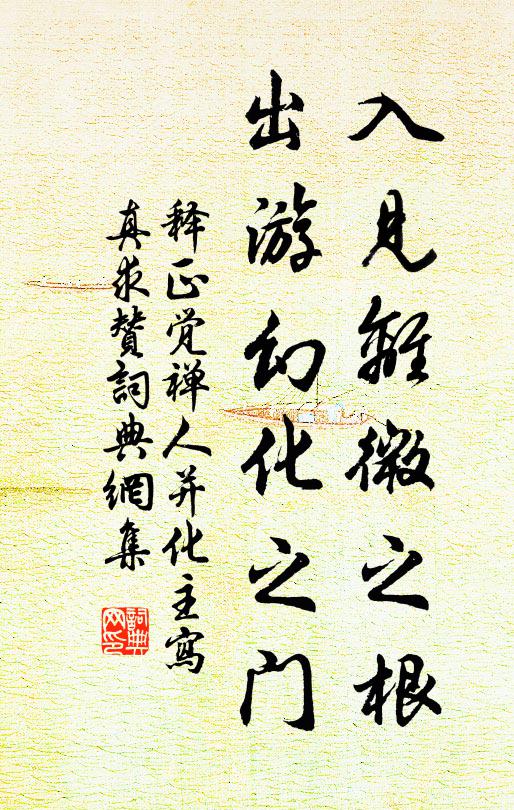 入見離微之根
出游幻化之门
释正覚禅人并化主寫
真求贊詞典網集
詞典网印